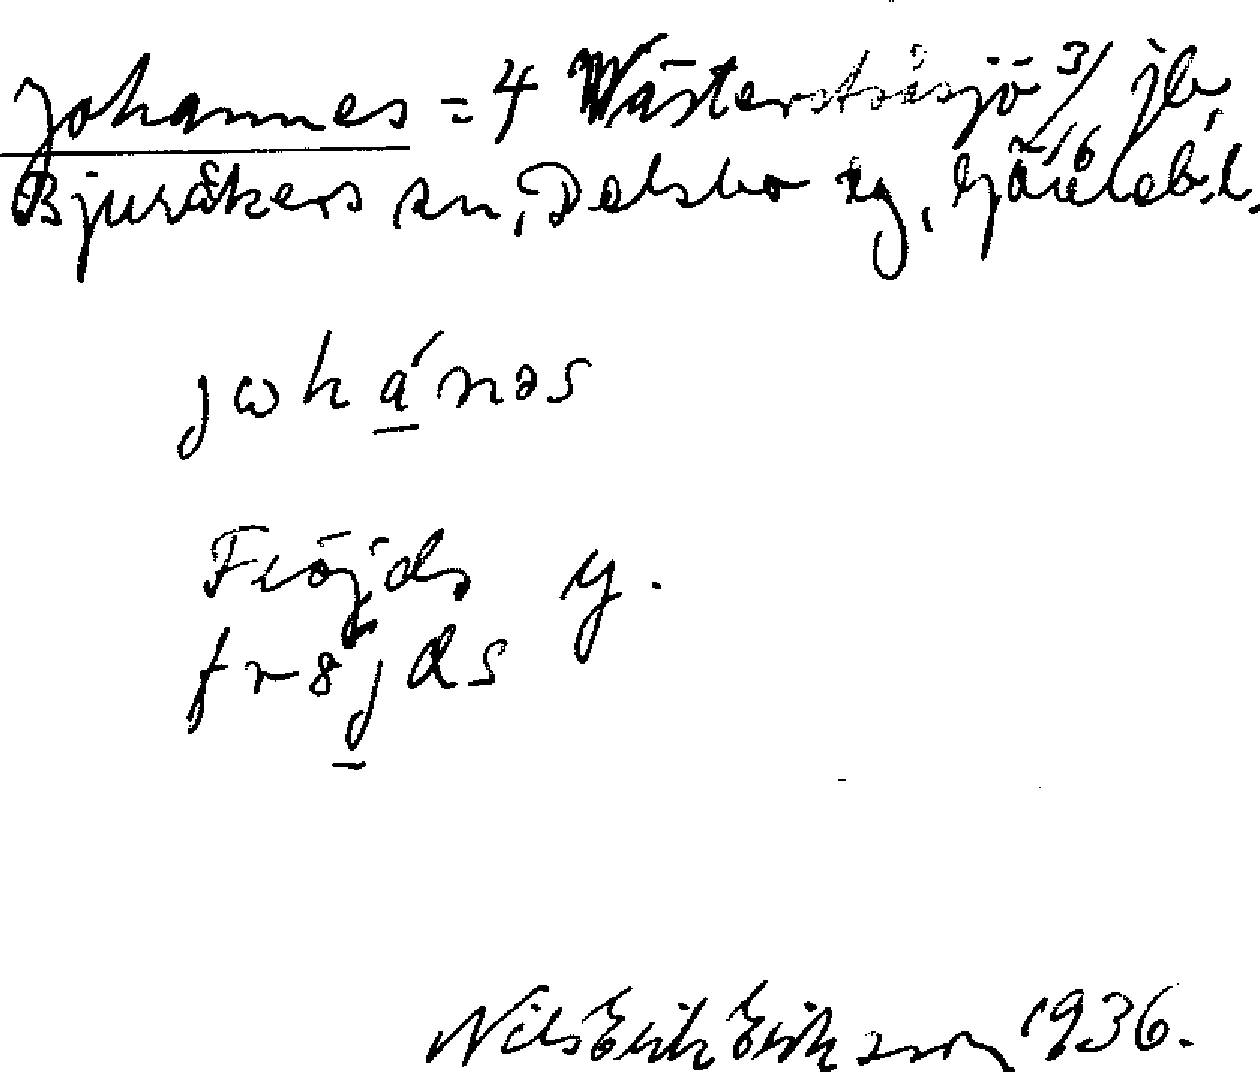 Johannes = 4 Västerstråsjö 3/16 jb,
Bjuråkers sn, Delsbo tg, Gävleb. l.
johánəs
Fröjds y.
frøjds
Nils Erik Eriksson 1936.